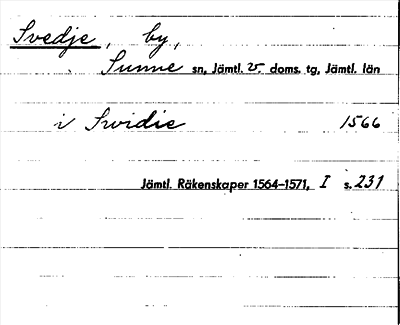 Svedje, by,
Sunne sn, Jämtl. v. doms. tg, Jämtl. län
i Swidie 1566
Jämtl. Räkenskaper 1564–1571, I s. 231